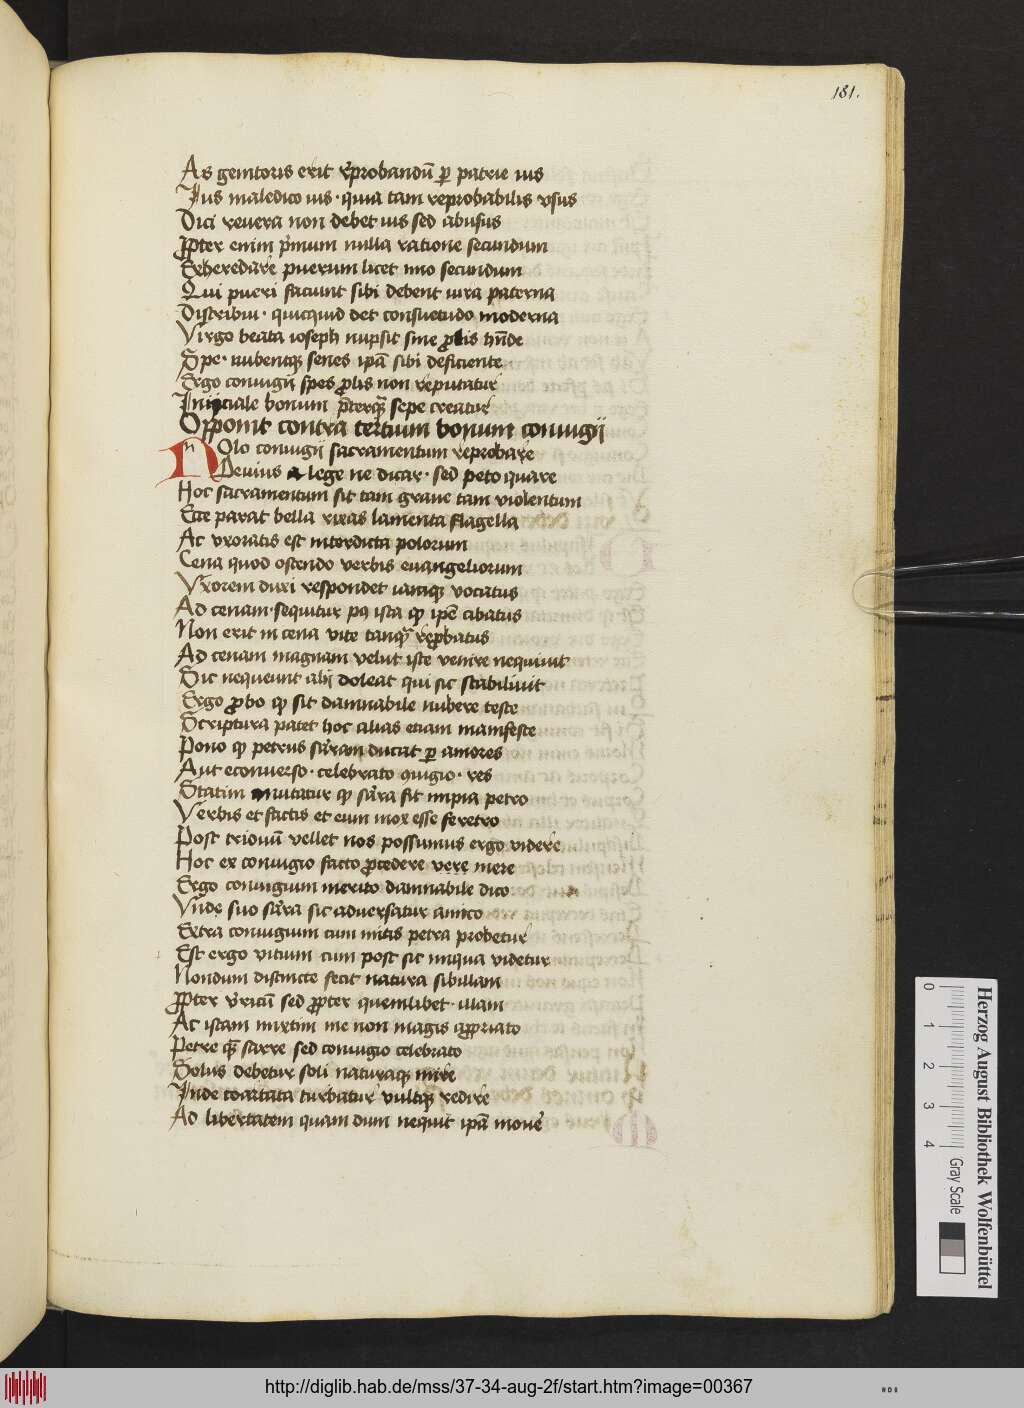 181.
As genitoris erit rꝓbandū ꝑ patrie ius
Ius maledico ius · quia tam reprobabilis vsus
Dici revera non debet ius sed abusus
Ꝓpter enim pͥmum nulla ratione secundum
Exheredare puerum licet imo secundum
Qui pueri faciunt sibi debent iura paterna
Distribui · quicquid det consuetudo moderna
Virgo beata ioseph nupsit sine ꝓlis hn̄de
Spe · nubentqꝫ senes ipā sibi deficiente
Ergo coniugii spes ꝓlis non reputatur
Iniciale bonum p̄terqꝫ sepe creatur
Opponit contra tertium bonum coniugij
Nolo coniugij sacramentum reprobare
Devius a lege ne dicar · sed peto quare
Hoc sacramentum sit tam grave tam violentum
Ecce parat bella rixas lamenta flagella
Ac vxoratis est interdicta polorum
Cena quod ostendo verbis euangeliorum
Vxorem duxi respondet iamqꝫ vocatus
Ad cenam · sequitur pꝰ ista ꝙ ipē cibatus
Non erit in cena vite tanqᷓ reꝓbatus
Ad cenam magnam velut iste venire nequiuit
Sic nequeunt alij doleat qui sic stabiliuit
Ergo ꝓbo ꝙ sit damnabile nubere teste
Scriptura patet hoc alias etiam manifeste
Pono ꝙ petrus saram ducat ꝑ amores
Aut econuerso · celebrato ꝯiugio · res
Statim mutatur ꝙ sara sit impia petro
Verbis et factis et eum mox esse feretro
Post triduū vellet nos possumus ergo videre
Hoc ex coniugio facto ꝓcedere vere mere
Ergo coniugium merito damnabile dico
Vnde suo sara sic aduersatur amico
Extra coniugium cum mitis petra probetur
Est ergo vitium cum post sic iniqua videtur
Nondum distincte fecit natura sibillam
Ꝓpter vricū sed ꝓpter quemlibet illam
Ac istam mixtim me non magis aꝓpriato
Petre qᷓ sarre sed coniugio celebrato
Solus debetur soli naturaqꝫ mire
Inde coartata turbatur vultqꝫ redire
Ad libertatem quam dum nequit ipā moue᷑
Herzog August Bibliothek Wolfenbüttel
0 1 2 3 4 Gray Scale
http://diglib.hab.de/mss/37-34-aug-2f/start.htm?image=00367